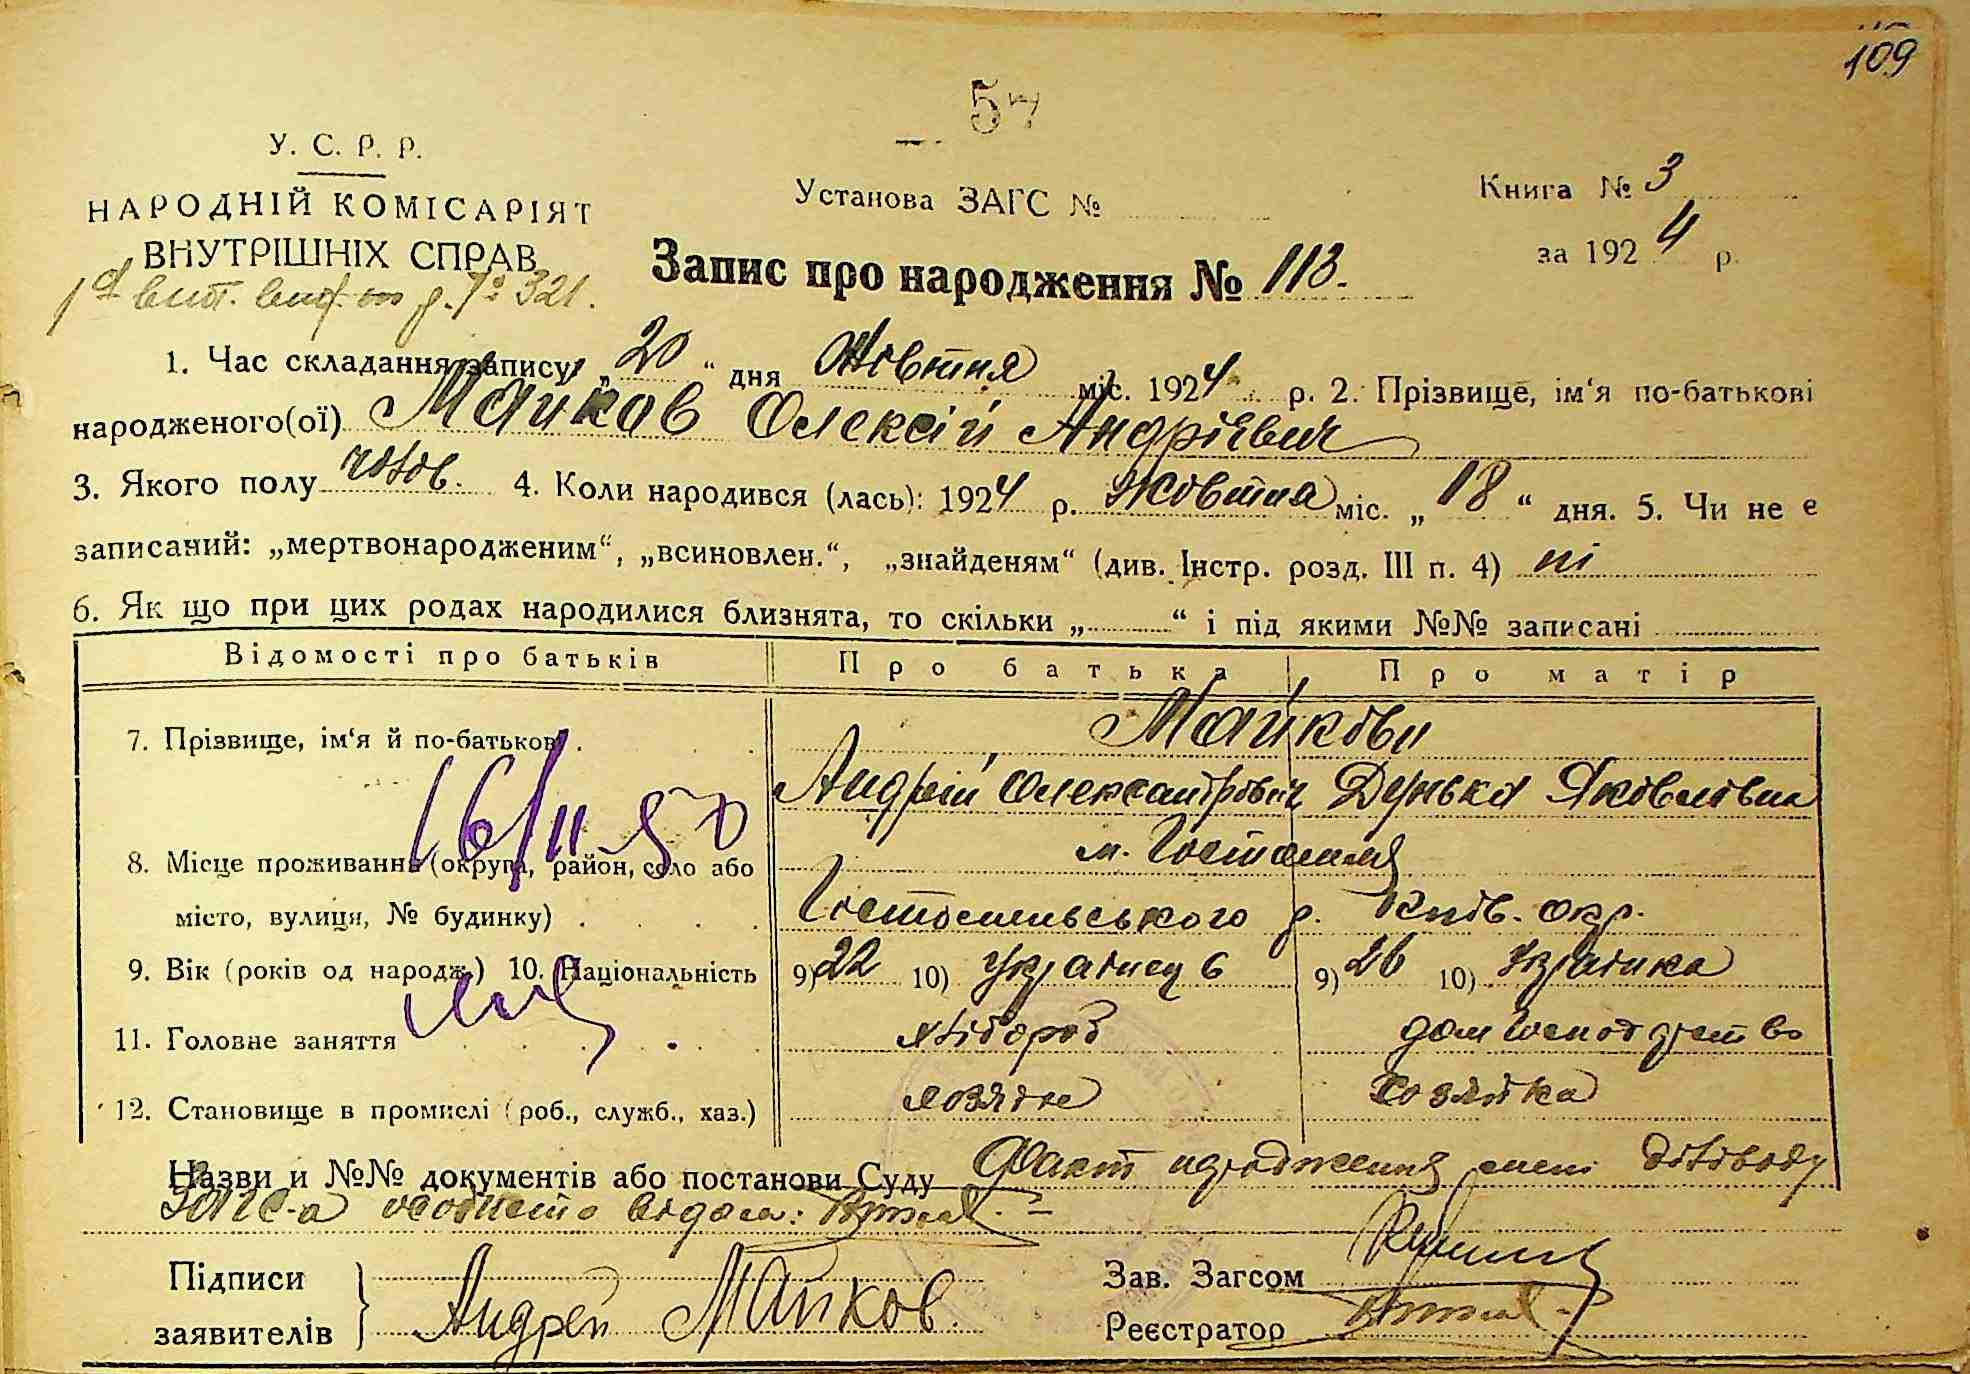 109
57
У. С. Р. Р.
НАРОДНІЙ КОМІСАРІЯТ
ВНУТРІШНІХ СПРАВ
№ 321.
Установа ЗАГС №
Книга № 3
за 1924 р.
Запис про народження № 113.
1. Час складання запису „20“ дня Жовтня міс. 1924 р. 2. Прізвище, ім‘я по-батькові
народженого(ої) Майков Олексій Андрієвич
3. Якого полу чолов. 4. Коли народився (лась): 1924 р. Жовтня міс. „18“ дня. 5. Чи не є
записаний: „мертвонародженим“, „всиновлен.“, „знайденям“ (див. Інстр. розд. III п. 4) ні
6. Як що при цих родах народилися близнята, то скільки „ “ і під якими №№ записані
Відомості про батьків Про батька Про матір
7. Прізвище, ім‘я й по-батькові Майкови
Андрій Олександрович Дунька Яковлівна
16/II 50
8. Місце проживання (округа, район, село або м. Гостомля
місто, вулиця, № будинку) Гостомельського р. Київ. окр.
9. Вік (років од народж.) 10. Національність 9) 22 10) Українець 9) 26 10) Українка
11. Головне заняття хлібороб дом господарство
12. Становище в промислі (роб., служб., хаз.) хозяїн хозяйка
Назви и №№ документів або постанови Суду Факт народження мені діловоду
ЗАГС-а особисто відом:
Підписи
заявителів Андрей Майков.
Зав. Загсом
Реєстратор